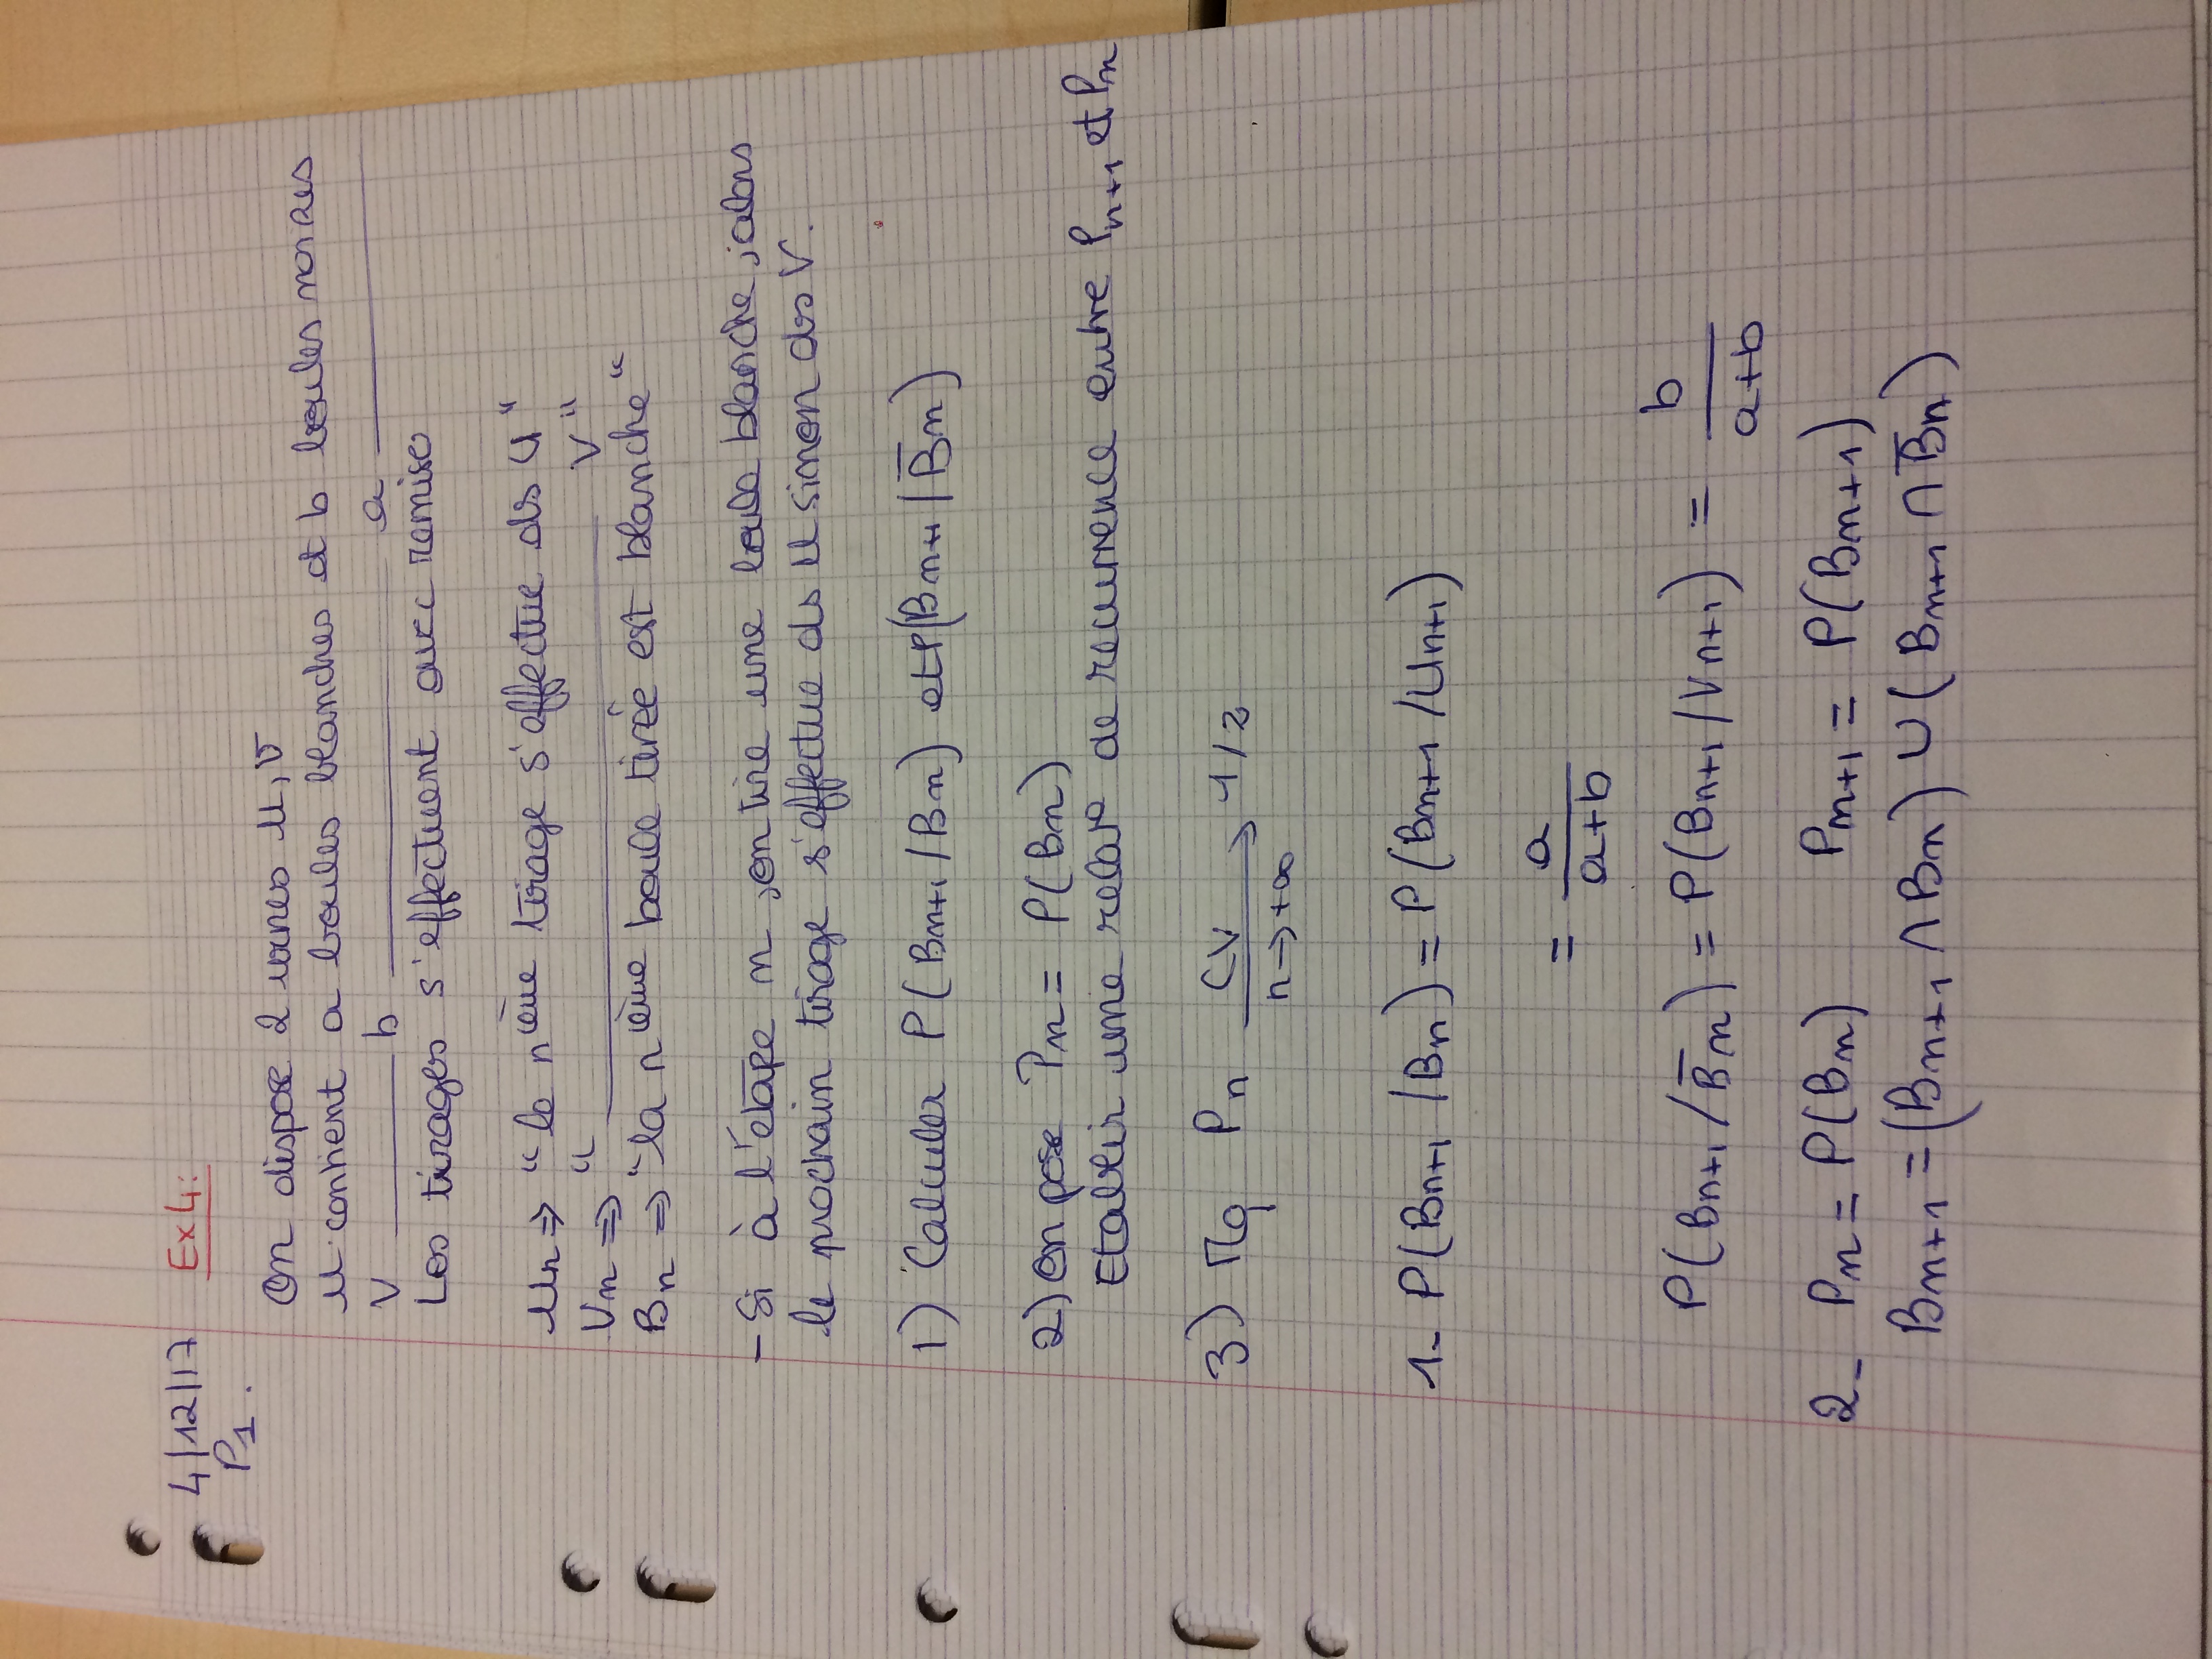 4/12/17 Ex 4:
P1.
On dispose 2 urnes U, V
U contient a boules blanches et b boules noires
V ______ b ______ a ______
Les tirages s'effectuent avec remise
Un => "le nième tirage s'effectue ds U"
Vn => " ______ V"
Bn => "la nième boule tirée est blanche"
- Si à l'étape n, on tire une boule blanche, alors
le prochain tirage s'effectue ds U sinon ds V.
1) Calculer P(Bn+1 / Bn) et P(Bn+1 / B̄n)
2) On pose Pn = P(Bn)
Etablir une relat° de recurrence entre Pn+1 et Pn
3) Mq Pn CV → 1/2
n → +∞
1- P(Bn+1 / Bn) = P(Bn+1 / Un+1)
= a / (a+b)
P(Bn+1 / B̄n) = P(Bn+1 / Vn+1) = b / (a+b)
2- Pn = P(Bn) Pn+1 = P(Bn+1)
Bn+1 = (Bn+1 ∩ Bn) ∪ (Bn+1 ∩ B̄n)